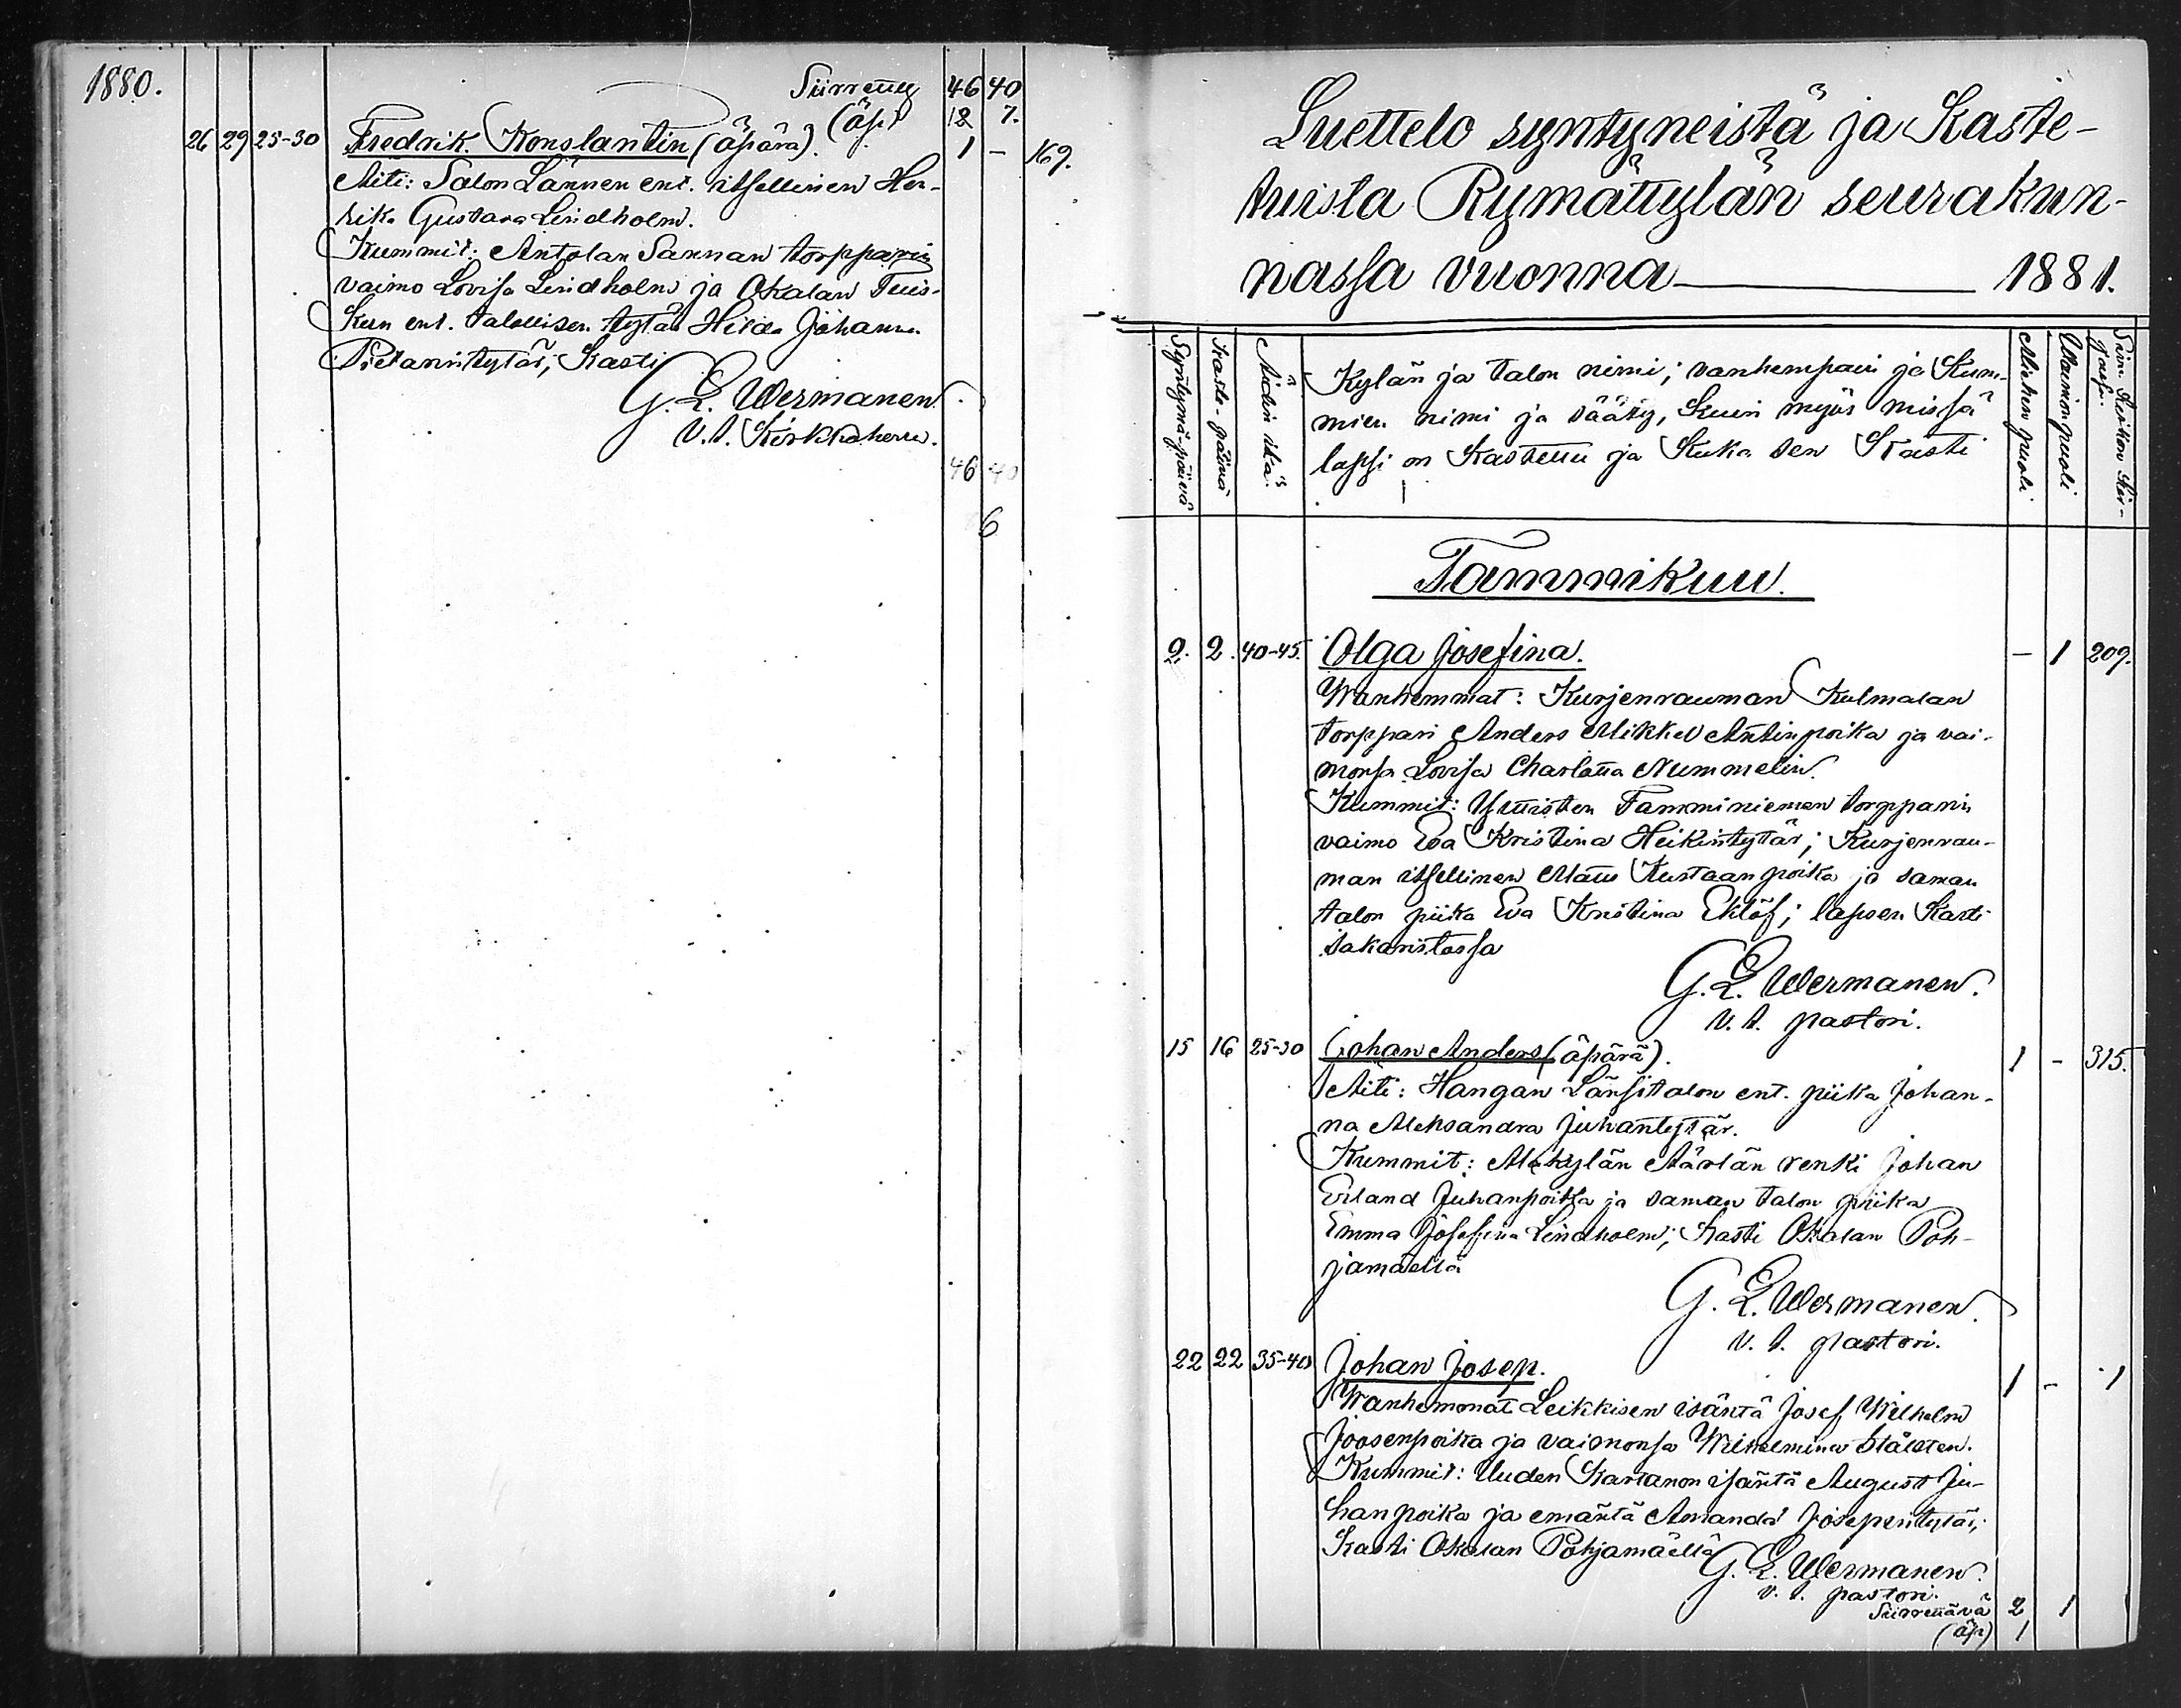 1880.
Siirretty 46 40
(äp.) 12 7.
26 29 25-30 Fredrik Konstantin (äpärä). 1 - 169.
Äiti: Salon Lännen ent. itsellinen Hen-
rika Gustava Lindholm.
Kummit: Antolan Sannan torpparin
vaimo Lovisa Lindholm ja Okalan Tuis-
kun ent. talollisen tytär Hilda Johanna
Kasti
G. E. Wermanen.
V. t. Kirkkoherra.
46 40
6
Luettelo syntyneistä ja Kaste-
tuista Rymättylän seurakun-
nassa vuonna 1881.
Syntymä-päivä
Kaste-päivä
Äidin ikä.
Kylän ja talon nimi; vanhempain ja Kum-
mien nimi ja sääty, kuin myös missä
lapsi on Kastettu ja Kuka sen Kasti
Miehen puoli
Waimon puoli
Tammikuu.
2. 2. 40-45. Olga Josefina. - 1 209.
Wanhemmat: Kurjenrauman Kulmalan
torppari Anders Mikkel Antinpoika ja vai-
monsa Lovisa Charlotta Nummelin.
Kummit: Yttisten Tamminiemen torpparin
vaimo Eva Kristina Heikintytär; Kurjenrau-
man itsellinen Matts Kustaanpoika ja saman
talon piika Eva Kristina Eklöf; lapsen Kasti
sakaristossa
G. E. Wermanen.
v. t. pastori.
15 16 25-30 Johan Anders (äpärä). 1 - 315.
Äiti: Hangan Länsitalon ent. piika Johan-
na Aleksandra Juhantytär.
Kummit: Alakylän Äärlän renki Johan
Erland Juhanpoika ja saman talon piika
Emma Josefina Lindholm; Kasti Okalan Poh-
jamäellä
G. E. Wermanen.
v. t. pastori.
22 22 35-40 Johan Josep. 1 - 1
Wanhemmat Leikkisen isäntä Josef Wilhelm
Joosenpoika ja vaimonsa Wilhelmina Stålsten.
Kummit: Uuden Kartanon isäntä August Ju-
hanpoika ja emäntä Amanda Josepintytär;
Kasti Okalan Pohjamäellä
G. E. Wermanen.
v. t. pastori.
Siirrettävä 2 1
(äp.) 1